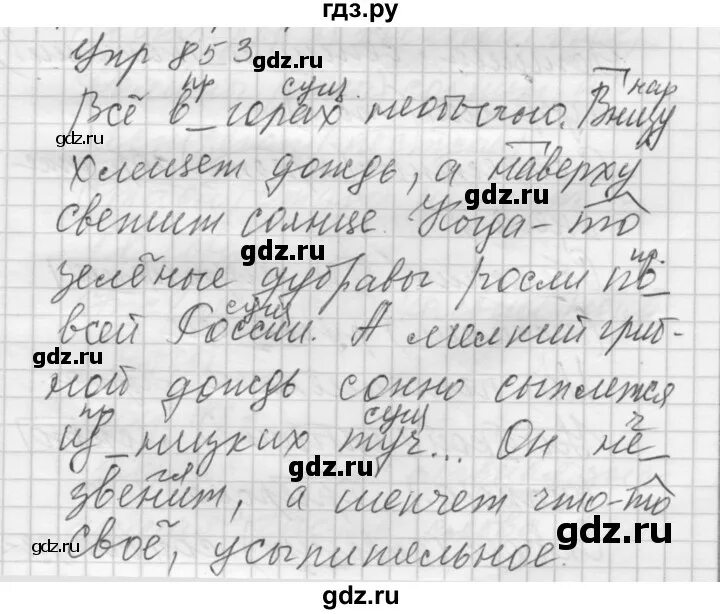 гдз.ру
Упр 853
пр сущ. нар
Всё в горах необычно. Внизу
хлещет дождь, а наверху
светит солнце. Когда-то
пр.
зелёные дубравы росли по
сущ
всей России. А мелкий гриб-
ной дождь сонно сыплется
пр сущ ч
из низких туч... Он не
гл
звенит, а шепчет что-то
своё, усыпительное.
gdz.ru
gdz.ru
gdz.ru
gdz.ru
gdz.ru
gdz.ru
gdz.ru
gdz.ru
gdz.ru
gdz.ru
gdz.ru